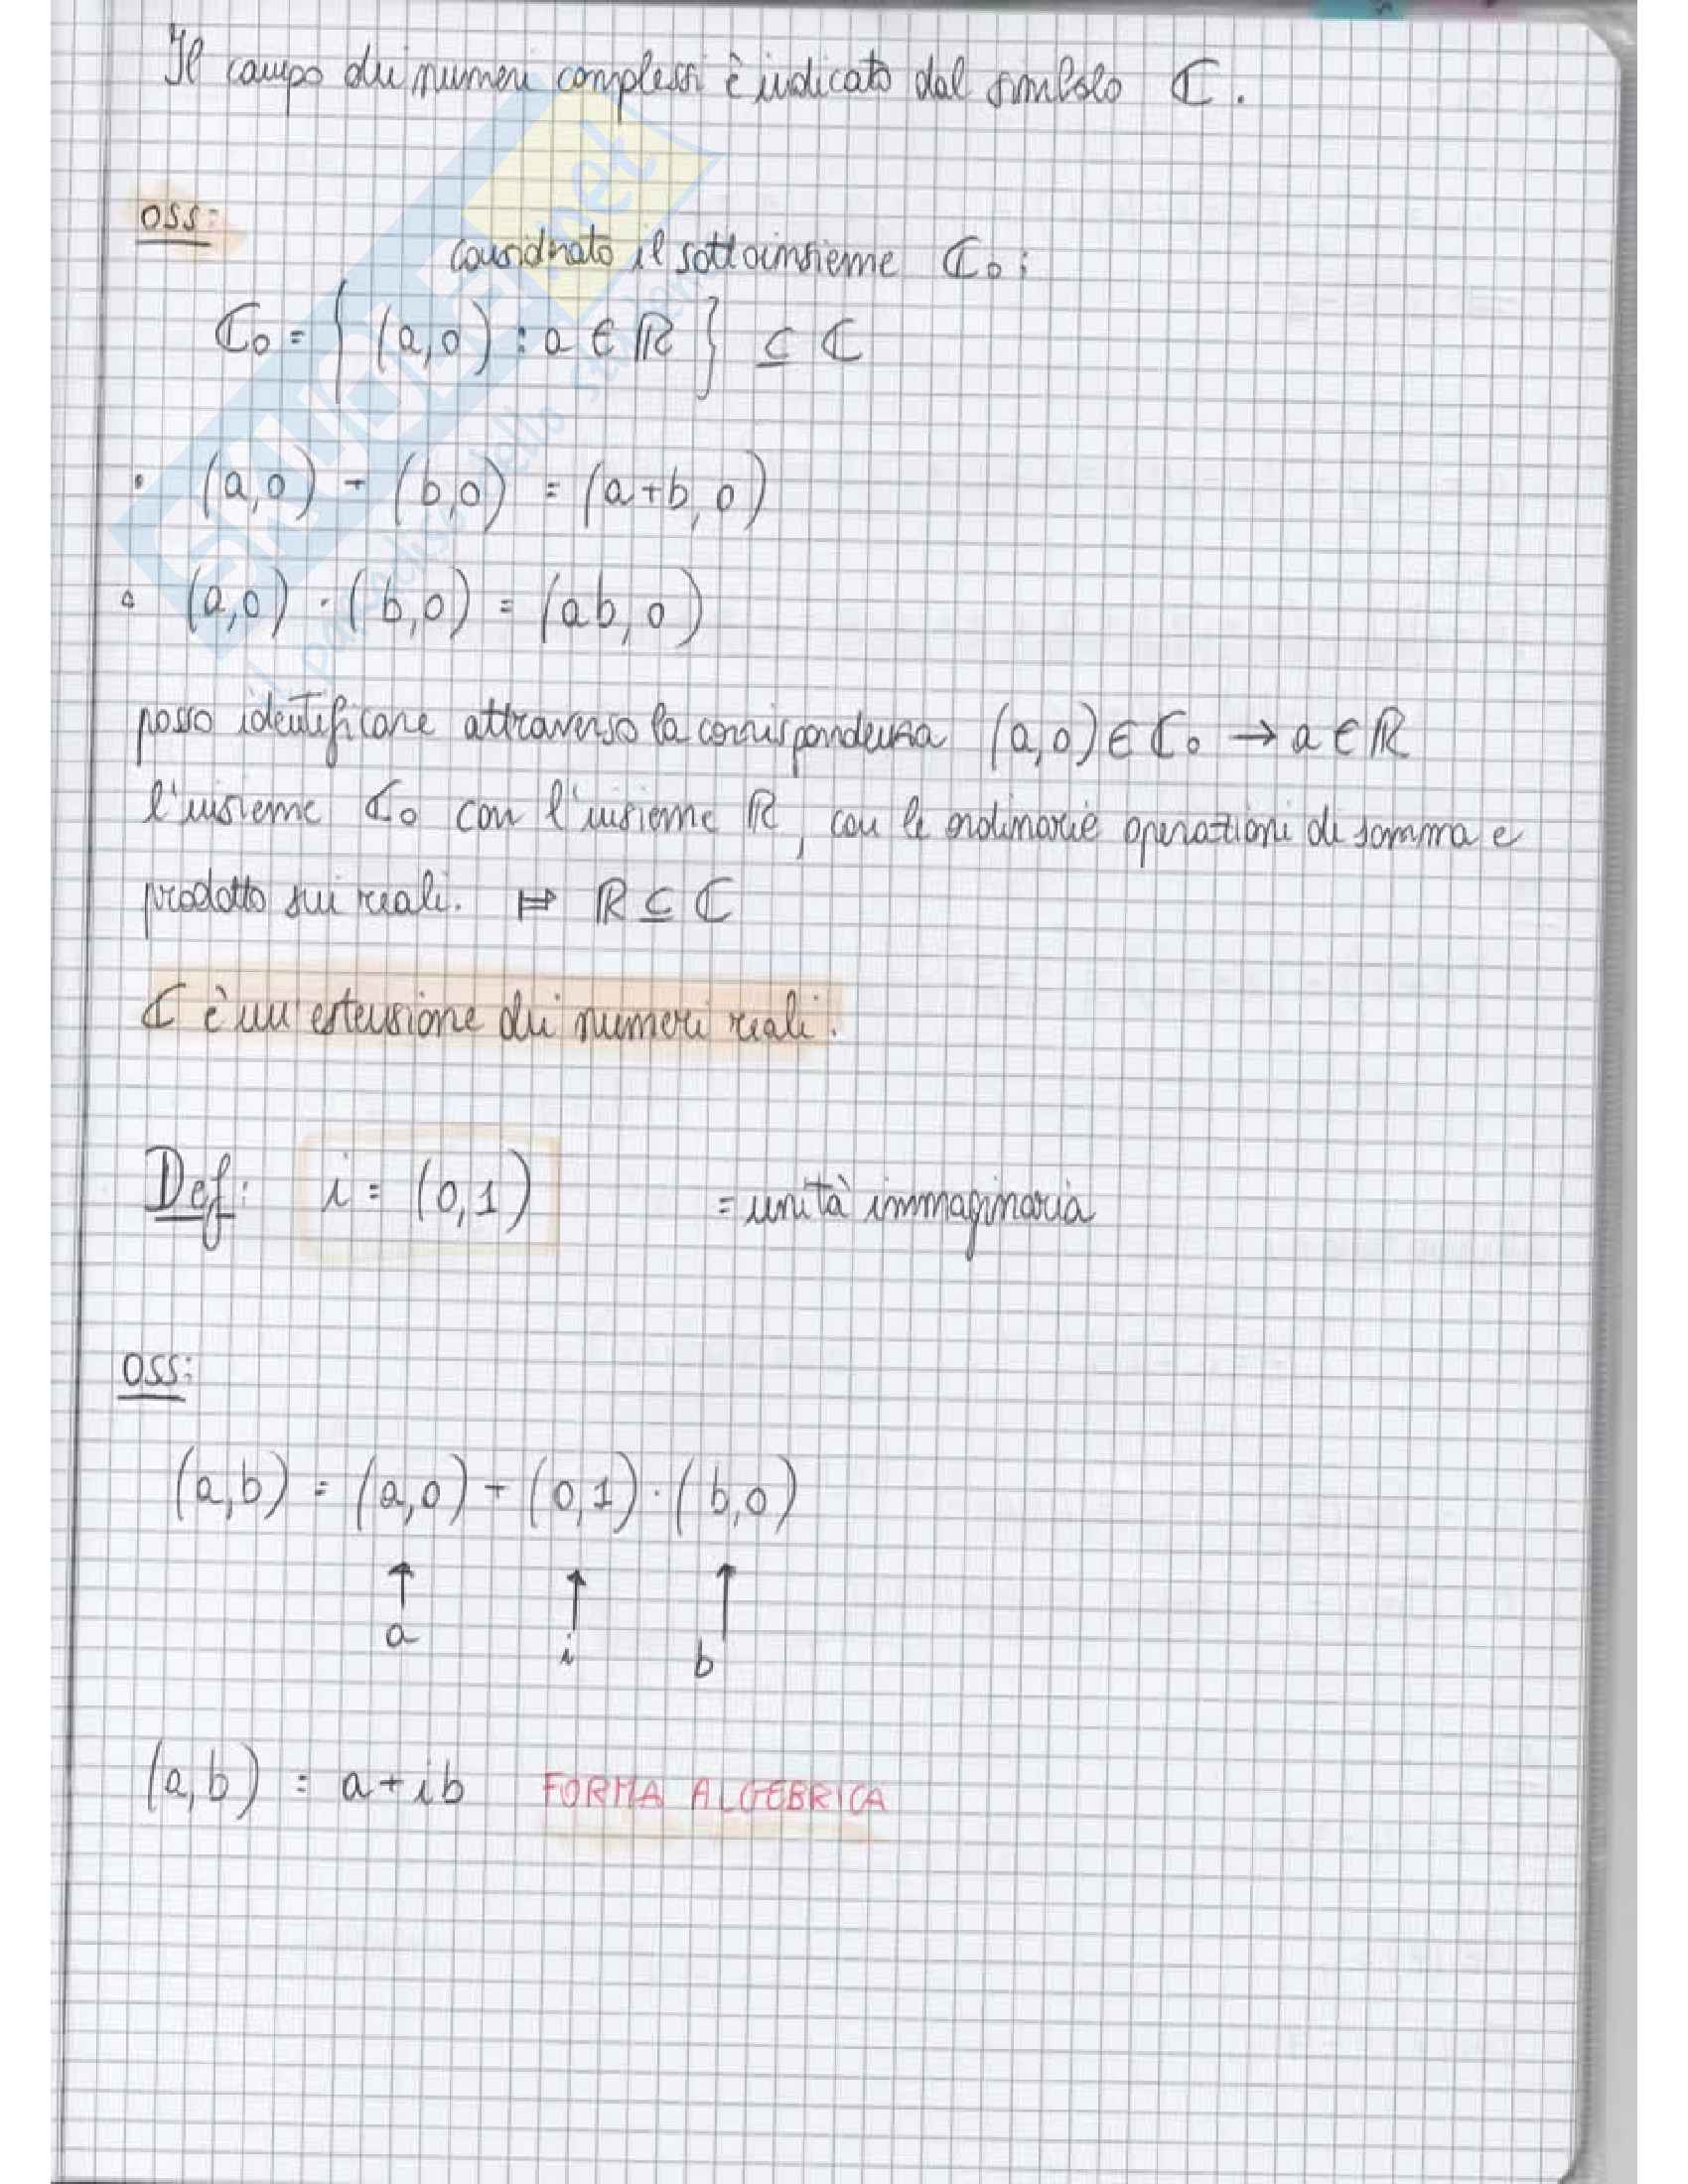 Il campo dei numeri complessi è indicato dal simbolo ℂ.
OSS:
considerato il sottoinsieme ℂ₀:
ℂ₀ = { (a,0) : a ∈ ℝ } ⊆ ℂ
• (a,0) + (b,0) = (a+b, 0)
• (a,0) · (b,0) = (ab, 0)
posso identificare attraverso la corrispondenza (a,0) ∈ ℂ₀ → a ∈ ℝ
l'insieme ℂ₀ con l'insieme ℝ, con le ordinarie operazioni di somma e
prodotto sui reali. ⇒ ℝ ⊆ ℂ
ℂ è un'estensione dei numeri reali.
Def: i = (0,1) = unità immaginaria
OSS:
(a,b) = (a,0) + (0,1) · (b,0)
↑ ↑ ↑
a i b
(a,b) = a + ib FORMA ALGEBRICA
SKUOLA.net